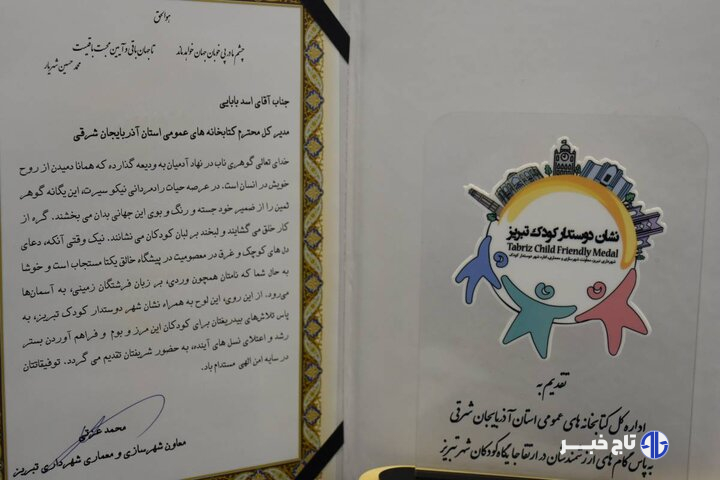 هوالحق
چشم ما در پی خوبان جهان خواهد ماند تا جهان باقی و آیین محبت باقیست
محمد حسین شهریار
جناب آقای اسد بابایی
مدیر کل محترم کتابخانه های عمومی استان آذربایجان شرقی
خدای تعالی گوهری ناب در نهاد آدمیان به ودیعه گذارده که همانا دمیدن از روح
خویش در انسان است. در عرصه حیات رادمردانی نیکو سیرت، این یگانه گوهر
ثمین را از ضمیر خود جسته و رنگ و بوی این جهانی بدان می بخشند. گره از
کار خلق می گشایند و لبخند بر لبان کودکان می نشانند. نیک وقتی آنکه، دعای
دل های کوچک و غرق در معصومیت در پیشگاه خالق یکتا مستجاب است و خوشا
به حال شما که نامتان همچون وردی، بر زبان فرشتگان زمینی، به آسمان‌ها
می‌رود. از این روی، این لوح به همراه نشان شهر دوستدار کودک تبریز، به
پاس تلاش‌های بیدریغتان برای کودکان این مرز و بوم و فراهم آوردن بستر
رشد و اعتلای نسل های آینده، به حضور شریفتان تقدیم می گردد. توفیقاتتان
در سایه امن الهی مستدام باد.
محمد عزتی
معاون شهرسازی و معماری شهرداری تبریز
نشان دوستدار کودک تبریز
Tabriz Child Friendly Medal
شهرداری تبریز، معاونت شهرسازی و معماری، اداره شهر دوستدار کودک
تقدیم به
اداره کل کتابخانه های عمومی استان آذربایجان شرقی
به پاس گام های ارزشمندشان در ارتقا جایگاه کودکان شهر تبریز
تاج خبر